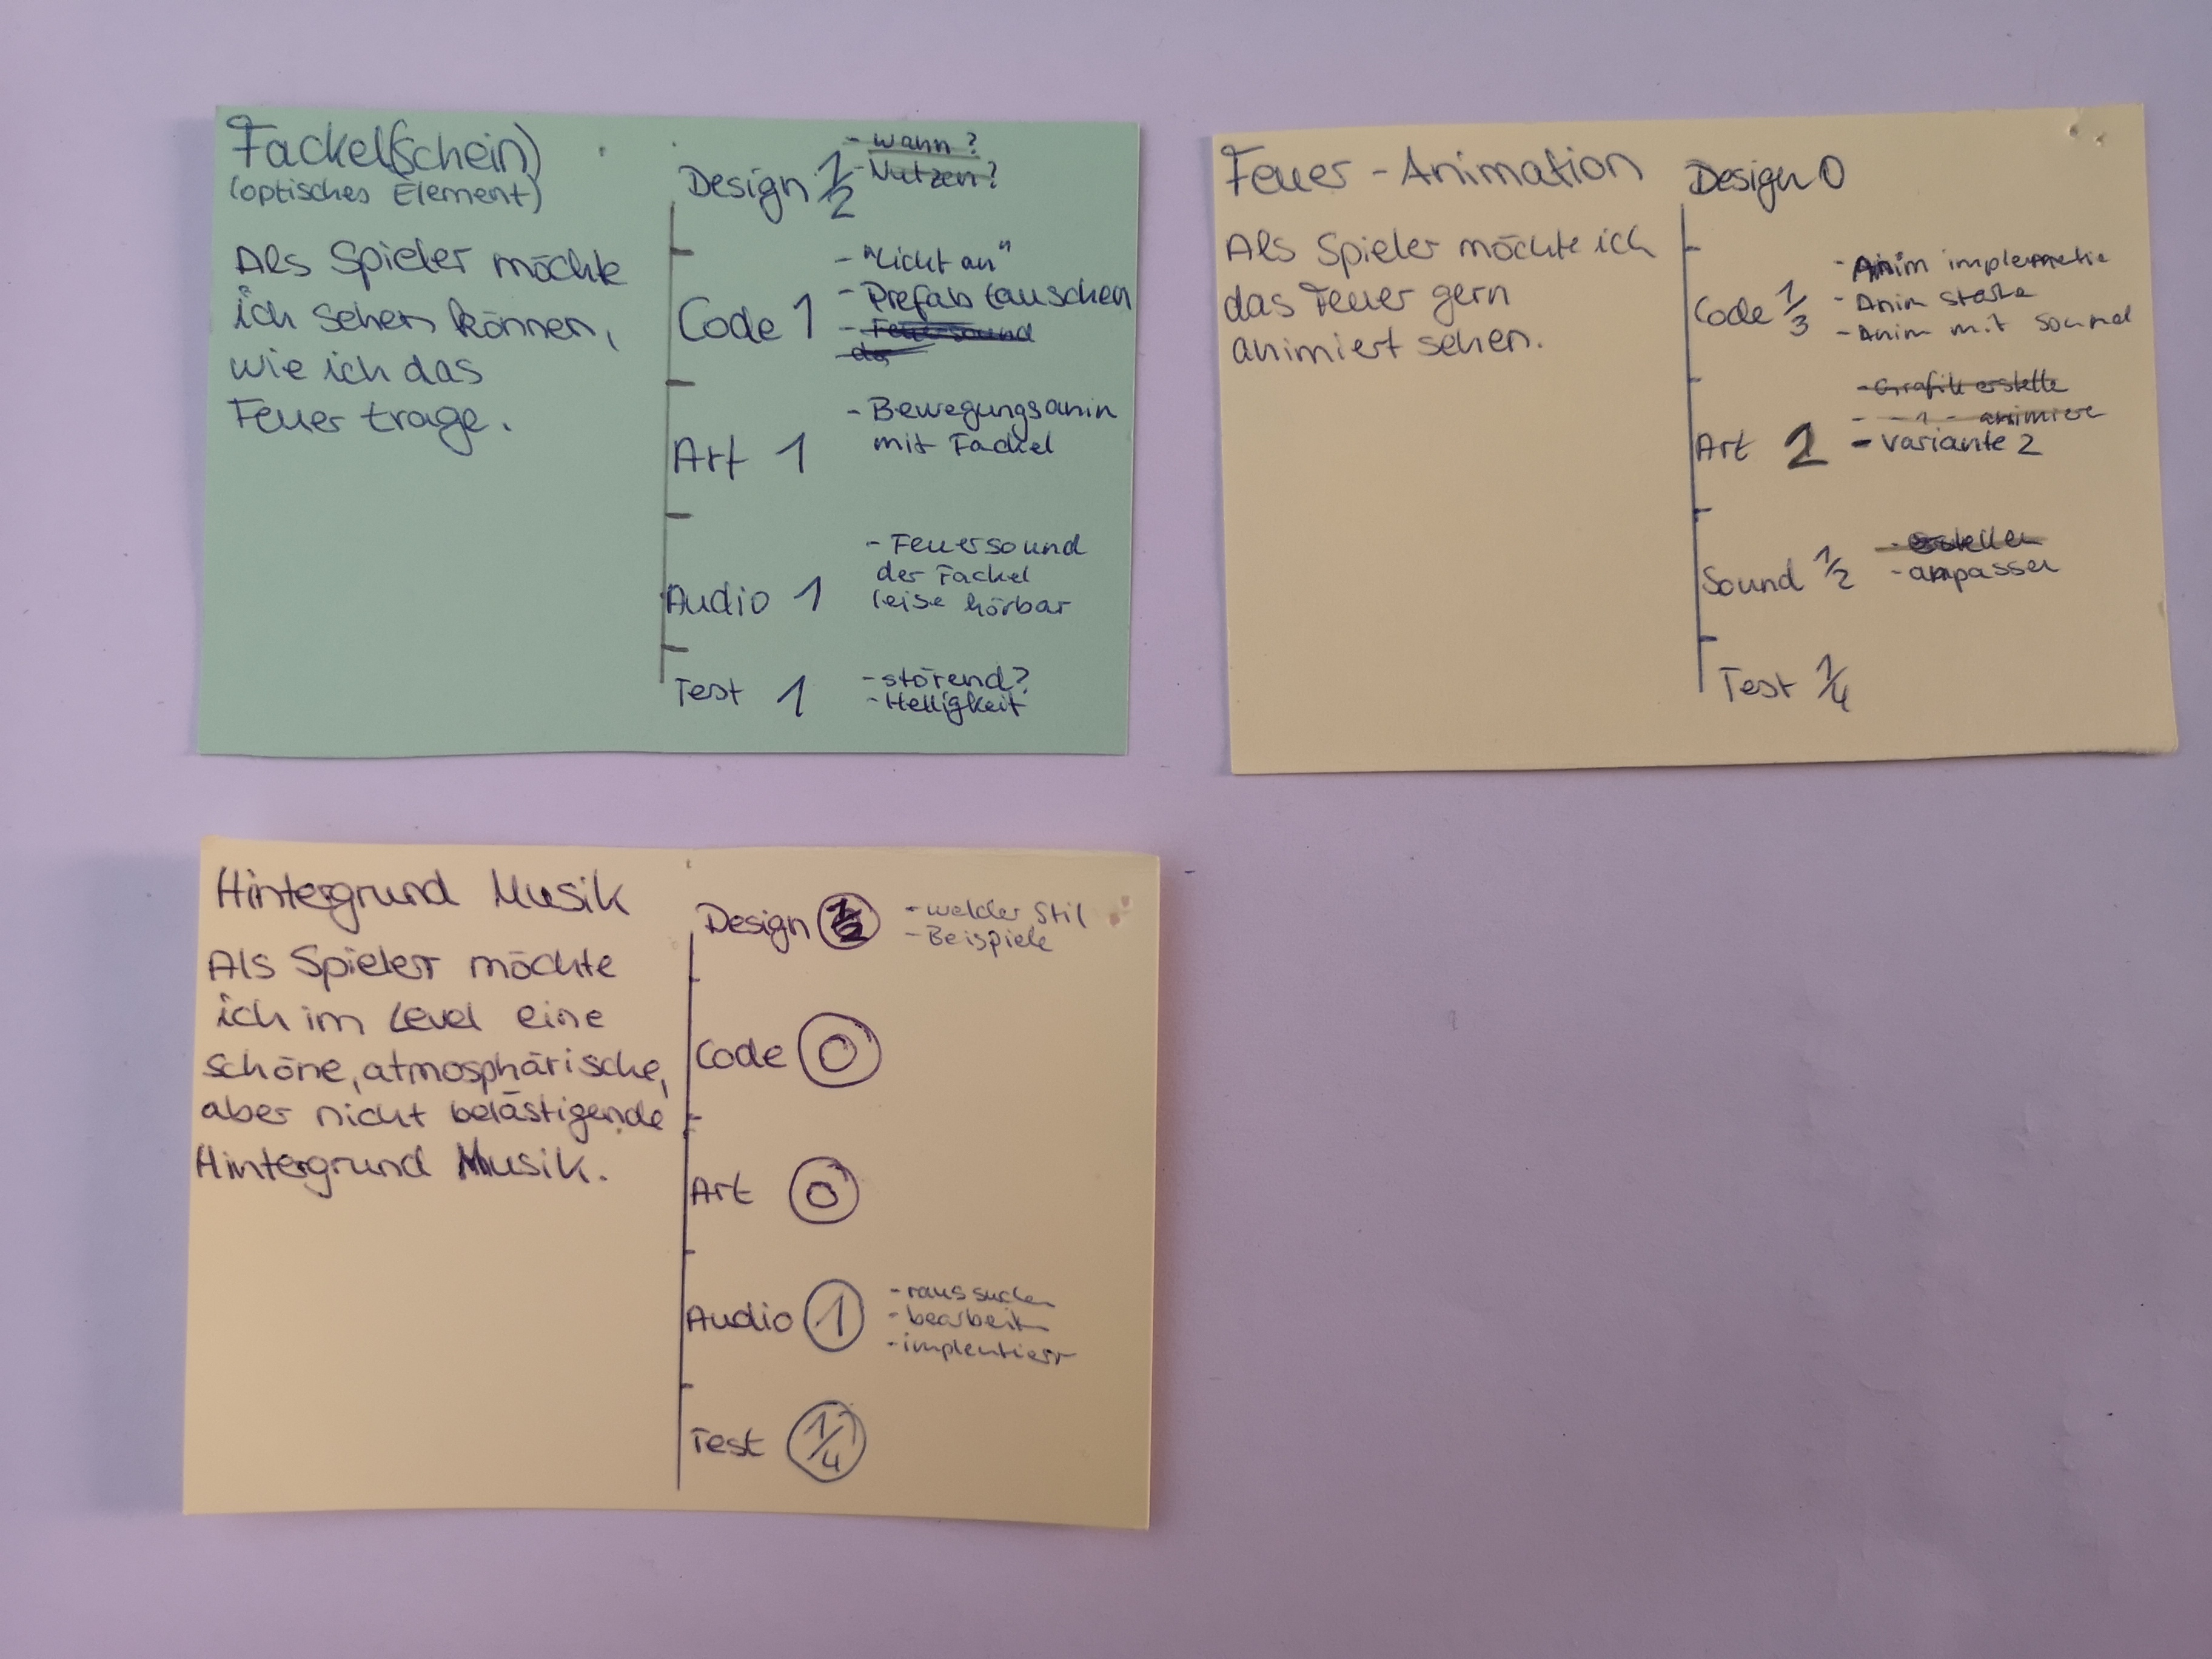 Fackel(schein)
(optisches Element)
Als Spieler möchte
ich sehen können,
wie ich das
Feuer trage.
Design 1/2
- wann?
- Nutzen?
Code 1
- "Licht an"
- Prefab tauschen
- Feuersound
Art 1
- Bewegungsanim
mit Fackel
Audio 1
- Feuersound
der Fackel
leise hörbar
Test 1
- störend?
- Helligkeit
Feuer-Animation
Als Spieler möchte ich
das Feuer gern
animiert sehen.
Design 0
Code 1/3
- Anim
- Anim
- Anim mit Sound
Art 2
- Grafik erstelle
- animiere
- Variante 2
Sound 1/2
- erstellen
- anpassen
Test 1/4
Hintergrund Musik
Als Spieler möchte
ich im Level eine
schöne, atmosphärische,
aber nicht belästigende
Hintergrund Musik.
Design
- welcher Stil
- Beispiele
Code 0
Art 0
Audio 1
- raussuchen
- bearbeiten
Test 1/4